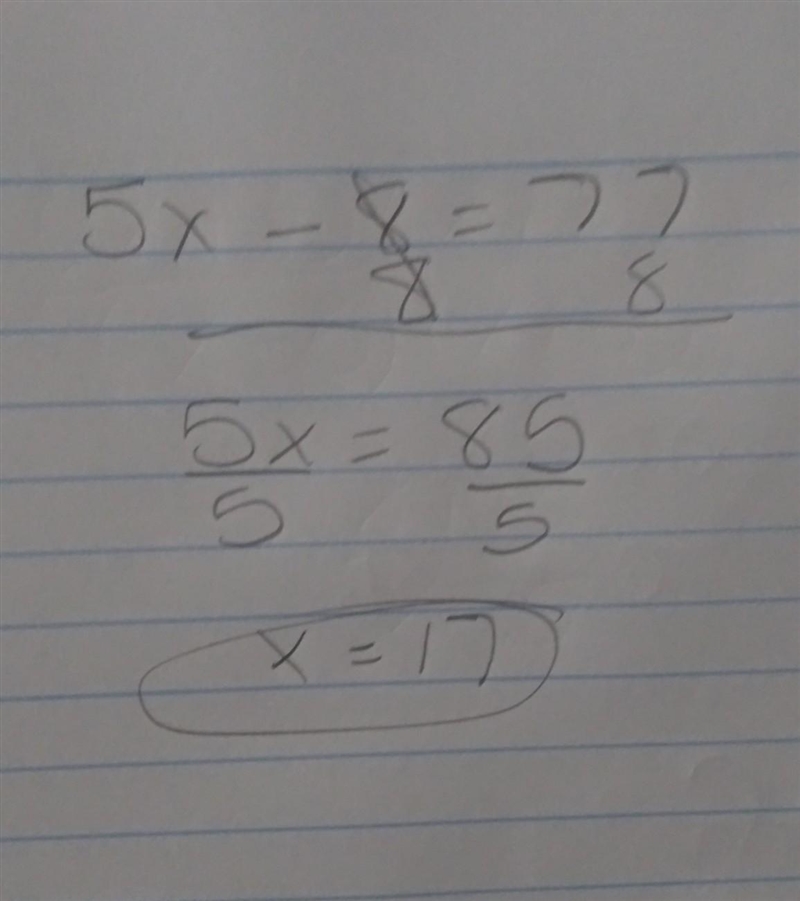 5x - 8 = 77
8 8
5x = 85
5 5
x = 17